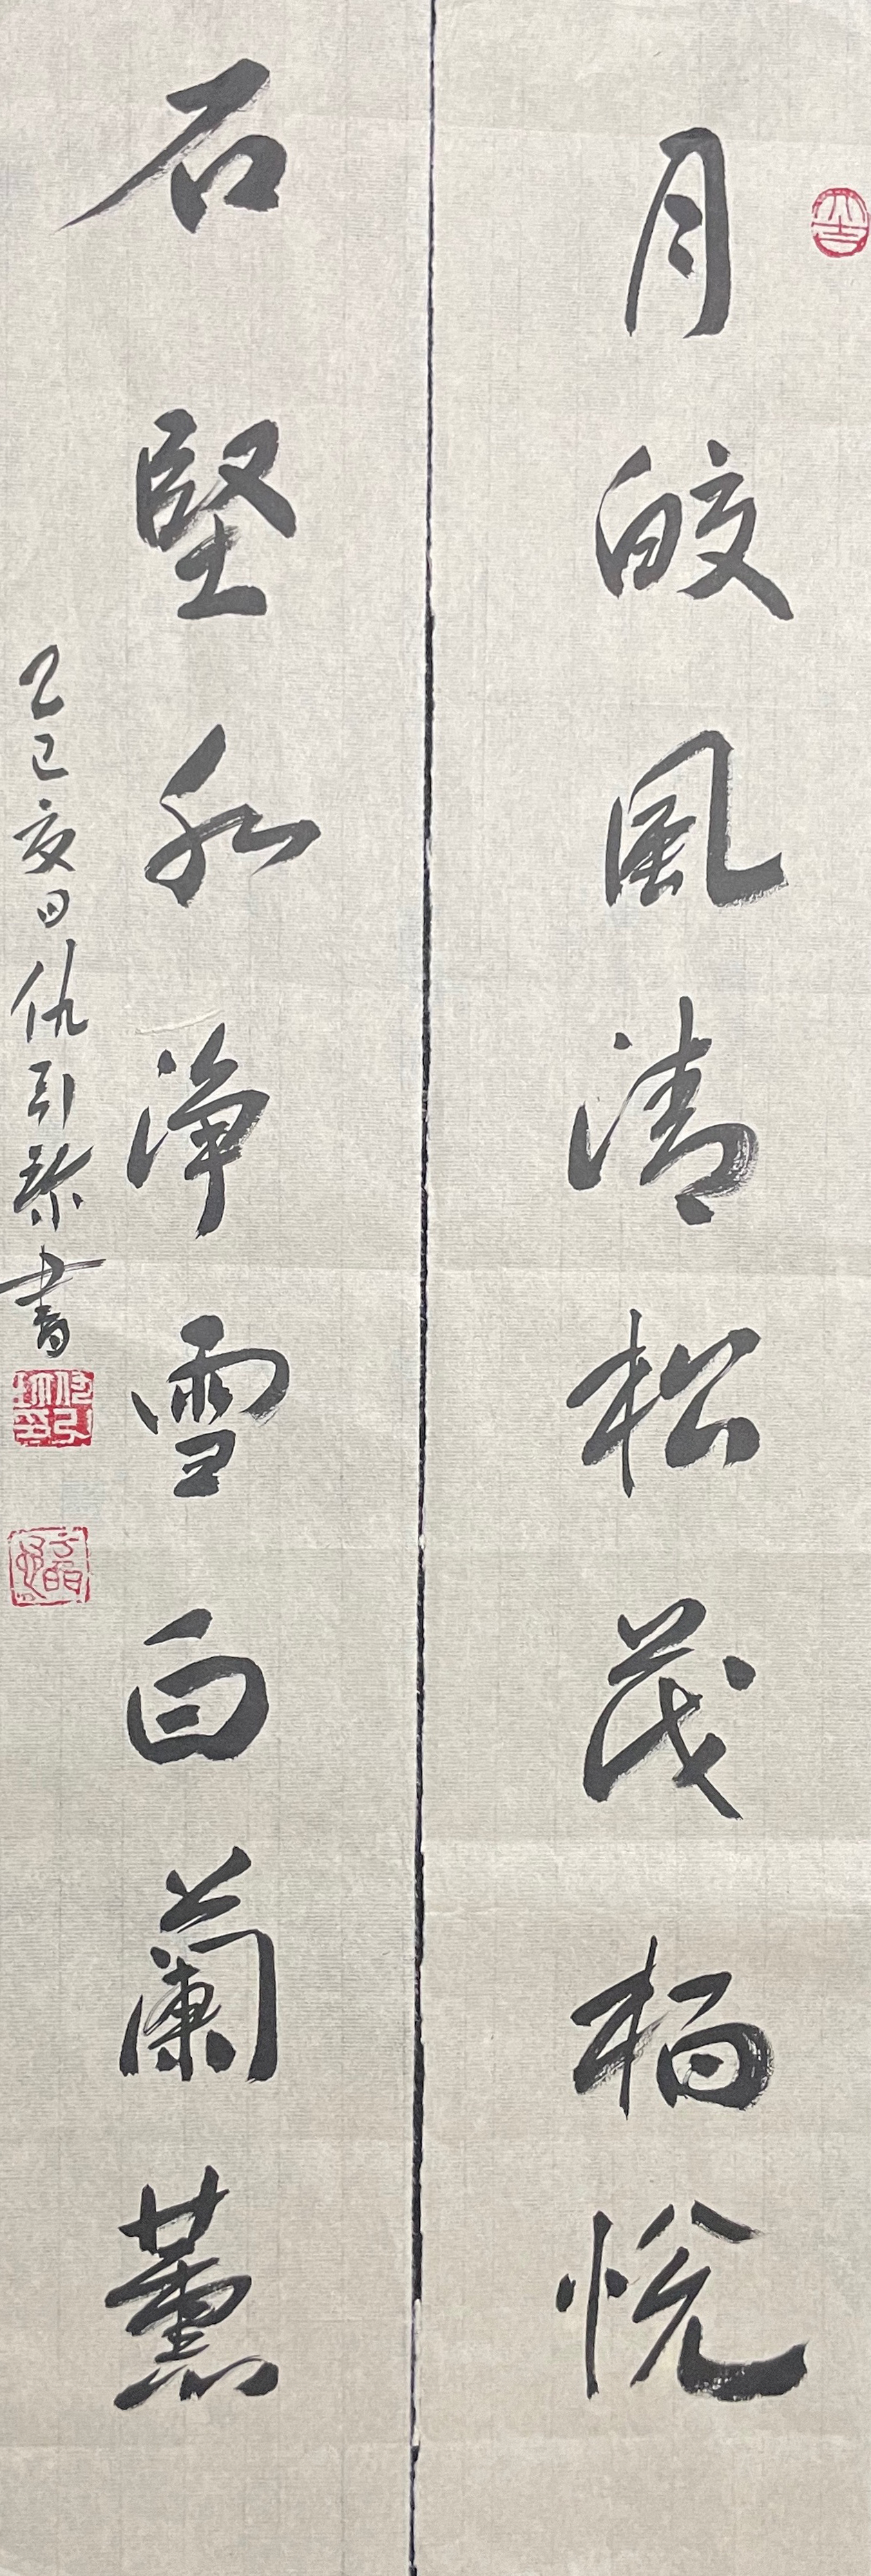 月皎風清松茂柏悅
石堅水淨雪白蘭薰
乙巳夏日仇引琛書